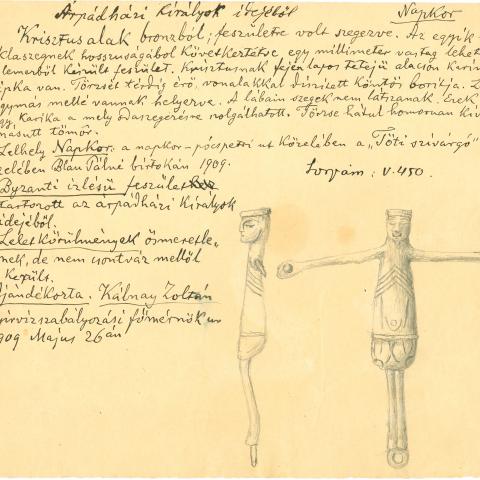 Árpádházi Királyok idejéből Napkor
Krisztus alak bronzból, feszületre volt szegezve. Az egyik
szegnek hosszuságából következtetve egy milliméter vastag
lemezből készült feszület. Krisztusnak fején lapos tetejü alacsony
van. Törzsét térdig érő, vonalakkal diszitett köntös borítja.
egymás mellé vannak helyezve. A lábain szegek nem látszanak.
karika a mely odaszegezésre szolgálhatott. Törzse hátul homoruan
másutt tömör.
Lelhely Napkor a napkor-pócspetri ut közelében a „Tóti szivárgó"
közelében Blau Pálné birtokán 1909. Sorszám: V.450.
Byzanti izlésü feszület
tartozott az árpádházi királyok
idejéből.
Lelet körülmények ösmeretle-
nek, de nem csontváz mellől
került.
Ajándékozta. Kálnay Zoltán
nyirvizszabályozási főmérnök ur
1909 Május 26án